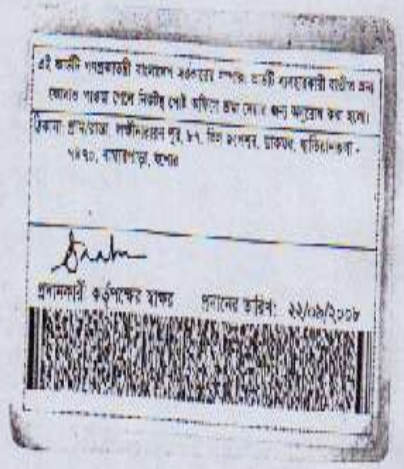 এই কার্ডটি গণপ্রজাতন্ত্রী বাংলাদেশ সরকারের সম্পত্তি। কার্ডটি ব্যবহারকারী ব্যতীত অন্য
কোথাও পাওয়া গেলে নিকটস্থ পোষ্ট অফিসে জমা দেবার জন্য অনুরোধ করা হলো।
ঠিকানা: গ্রাম/রাস্তা: লক্ষীনারায়ন পুর, ৮৭, ডাকঘর:
৭৪৭০, বাঘারপাড়া, যশোর
প্রদানকারী কর্তৃপক্ষের স্বাক্ষর প্রদানের তারিখ: